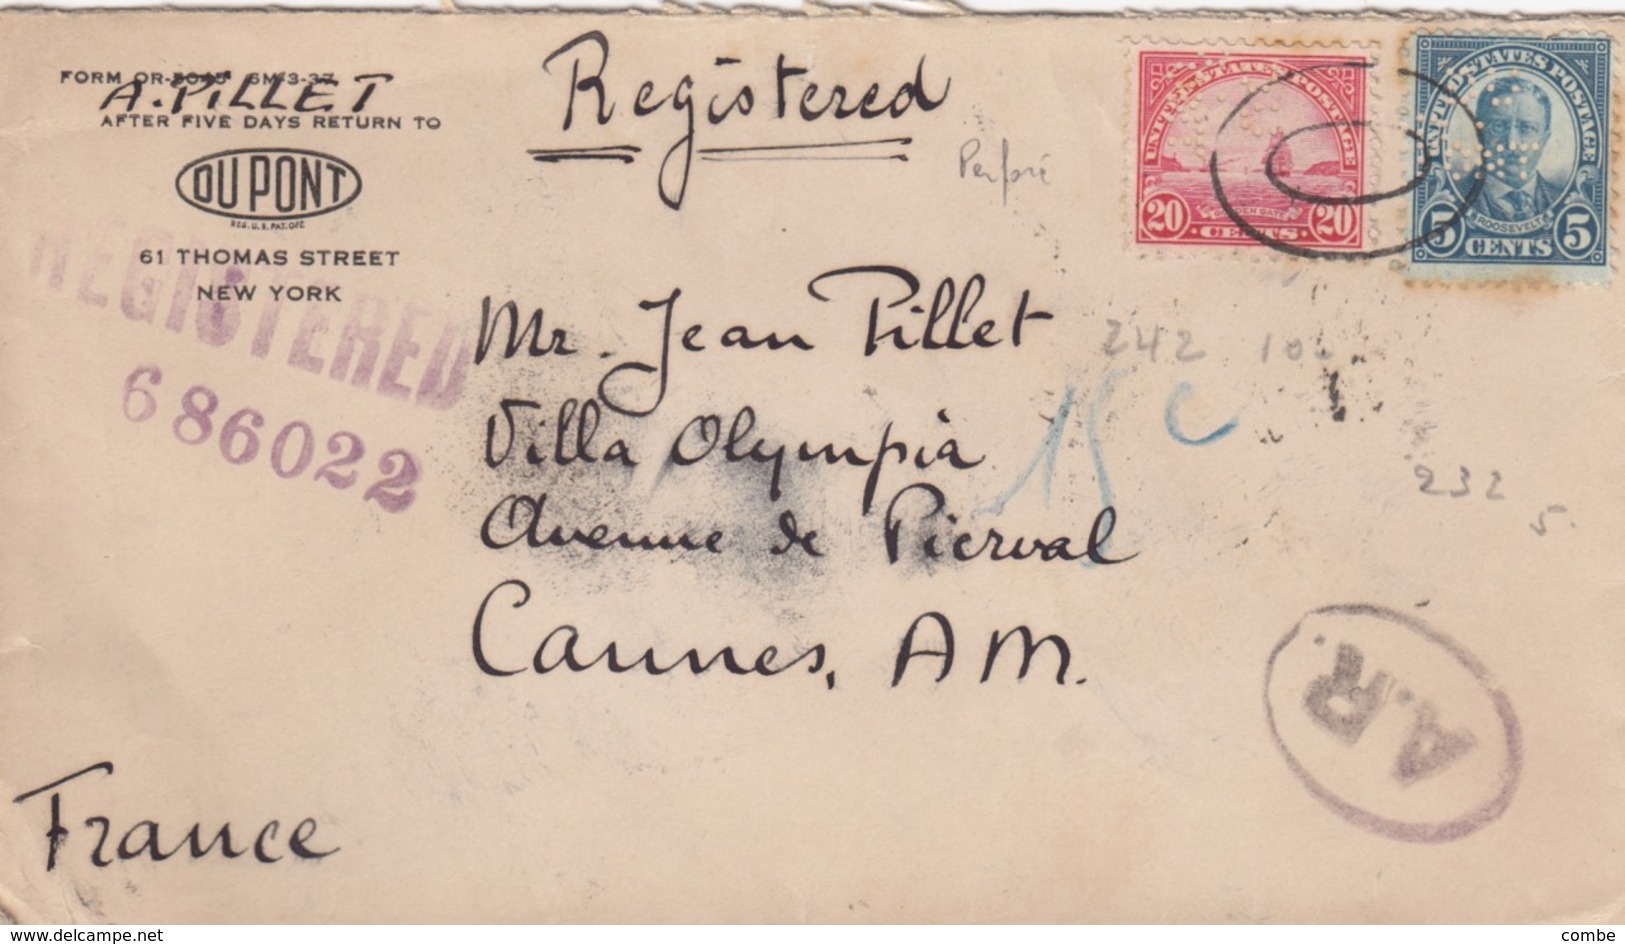 FORM OR-5045 5M-3-37
A. PILLET
AFTER FIVE DAYS RETURN TO
DU PONT
REG. U.S. PAT. OFF.
61 THOMAS STREET
NEW YORK
REGISTERED
686022
Registered
Perforé
UNITED STATES POSTAGE
GOLDEN GATE
20 CENTS 20
UNITED STATES POSTAGE
ROOSEVELT
5 CENTS 5
Mr. Jean Pillet
Villa Olympia
Avenue de Pierval
Cannes, AM.
France
242
15 c
232
5
A.R.
www.delcampe.net
combe